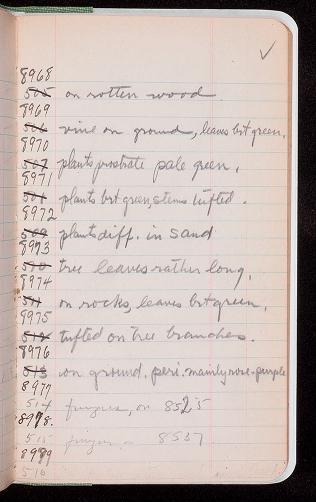 8968
505 on rotten wood
8969
506 vine on ground, leaves brt green.
8970
507 plants prostrate pale green,
8971
508 plants brt green, stems tufted.
8972
509 plants diff. in sand
8973
510 tree leaves rather long,
8974
511 on rocks, leaves brt green,
8975
512 tufted on tree branches.
8976
513 on ground, peri. mainly rose-purple
8977
514 fungus, on 8525
8978.
515 fungus on 8537
8979
516